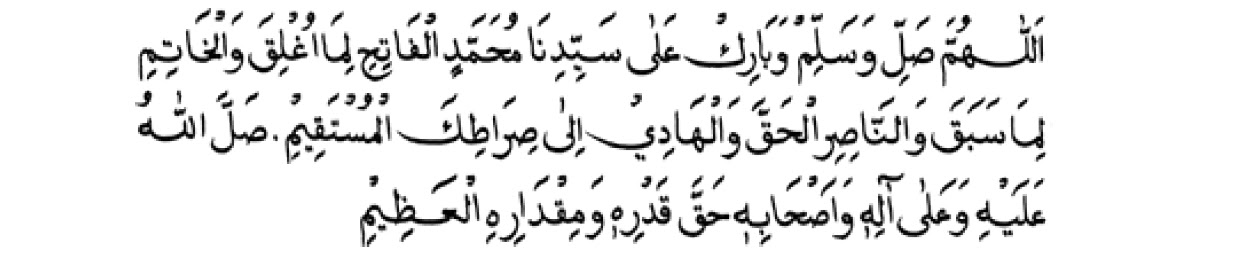 اَللّٰهُمَّ صَلِّ وَسَلِّمْ وَبَارِكْ عَلٰى سَيِّدِنَا مُحَمَّدٍ الْفَاتِحِ لِمَا اُغْلِقَ وَالْخَاتِمِ
لِمَا سَبَقَ وَالنَّاصِرِ الْحَقَّ وَالْهَادِيْ اِلٰى صِرَاطِكَ الْمُسْتَقِيْمِ. صَلَّ اللّٰهُ
عَلَيْهِ وَعَلٰى آلِهٖ وَاَصْحَابِهٖ حَقَّ قَدْرِهٖ وَمِقْدَارِهِ الْعَظِيْمِ